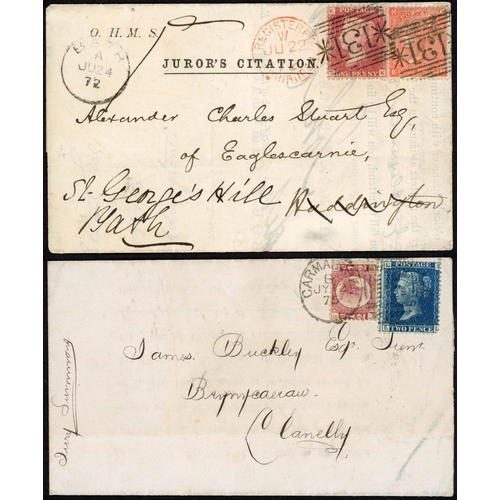 O. H. M. S.
BATH
A
JU 24
72
REGISTERED
W
JU 22
JUROR'S CITATION.
131
131
ONE PENNY
Alexander Charles Stuart Esq,
of Eaglescarnie,
St. George's Hill Haddington
Bath
CARMAR
B
JY
7
POSTAGE
TWO PENCE
James Buckley Esq. Junr
Brynycaerau
Llanelly
Jury Summons